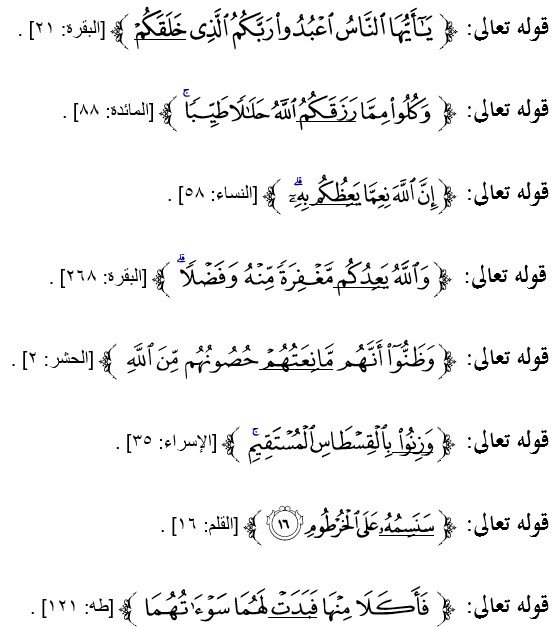 قوله تعالى: ﴿ يَـٰٓأَيُّهَا ٱلنَّاسُ ٱعْبُدُوا۟ رَبَّكُمُ ٱلَّذِى خَلَقَكُمْ ﴾ [البقرة: ٢١] .
قوله تعالى: ﴿ وَكُلُوا۟ مِمَّا رَزَقَكُمُ ٱللَّهُ حَلَـٰلًا طَيِّبًا ۚ ﴾ [المائدة: ٨٨] .
قوله تعالى: ﴿ إِنَّ ٱللَّهَ نِعِمَّا يَعِظُكُم بِهِۦٓ ۗ ﴾ [النساء: ٥٨] .
قوله تعالى: ﴿ وَٱللَّهُ يَعِدُكُم مَّغْفِرَةً مِّنْهُ وَفَضْلًا ۗ ﴾ [البقرة: ٢٦٨] .
قوله تعالى: ﴿ وَظَنُّوٓا۟ أَنَّهُم مَّانِعَتُهُمْ حُصُونُهُم مِّنَ ٱللَّهِ ﴾ [الحشر: ٢] .
قوله تعالى: ﴿ وَزِنُوا۟ بِٱلْقِسْطَاسِ ٱلْمُسْتَقِيمِ ۚ ﴾ [الإسراء: ٣٥] .
قوله تعالى: ﴿ سَنَسِمُهُۥ عَلَى ٱلْخُرْطُومِ ١٦ ﴾ [القلم: ١٦] .
قوله تعالى: ﴿ فَأَكَلَا مِنْهَا فَبَدَتْ لَهُمَا سَوْءَٰتُهُمَا ﴾ [طه: ١٢١] .